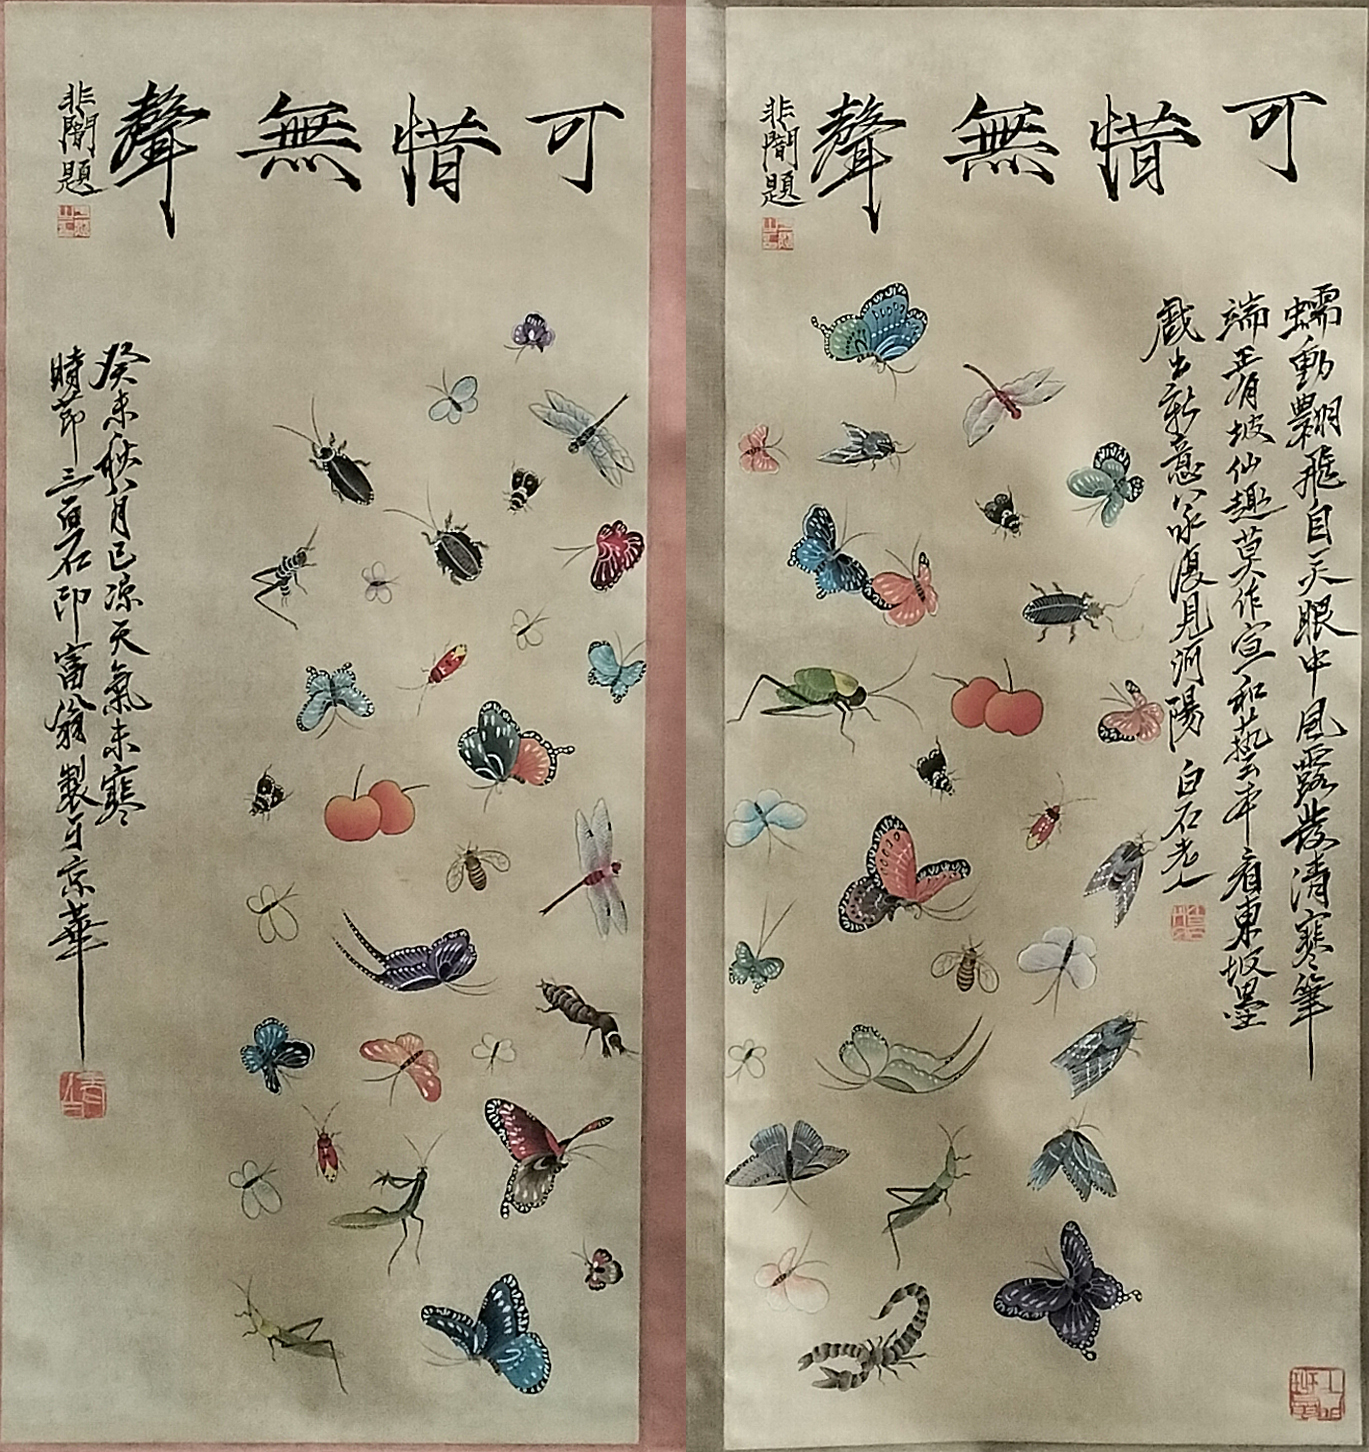 可惜無聲
非闇題
癸未秋八月已凉天氣未寒
時節三百石印富翁製于京華
可惜無聲
非闇題
蠕動翾飛自天眼中風露發清寒筆
端正有坡仙趣莫作宣和藝本看東坡墨
戲出新意公家復見河陽
白石老人